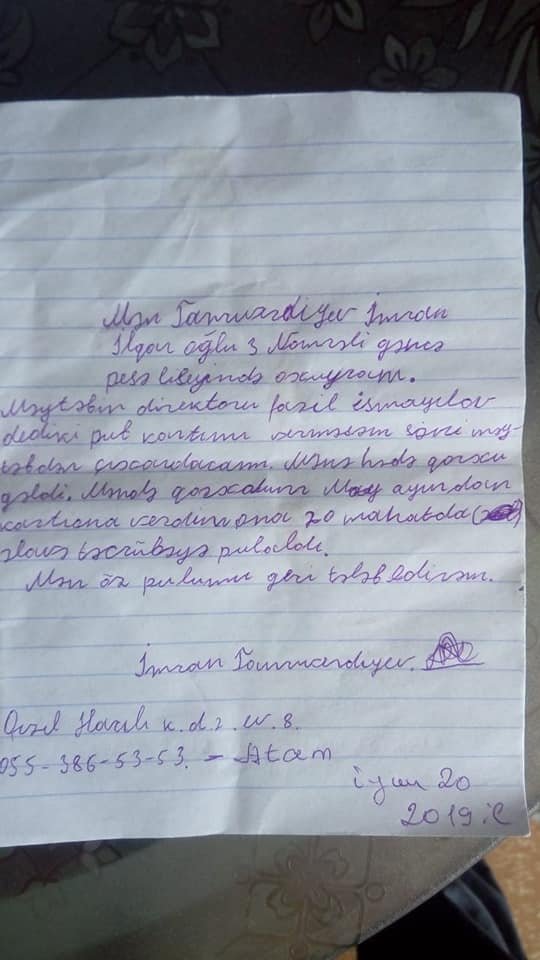 Mən Tanrıvərdiyev İmran
İlqar oğlu 3 Nömrəli gəncə
peşə liseyində oxuyuram.
Məytəbin direktoru fazil ismayılov
dediki pul kartını verməsəm səni məy-
təbdən çıxardacam. Mənə hədə qorxu
gəldi. Məndə qorxdum May ayından
kartıona verdim ona 20 manatda
əlavə təcrübəyə pulaldı.
Mən öz pulumu geri tələb edirəm.
İmran Tanrıverdiyev.
Qızıl Hacılı k. d. 2. ev. 8.
055-386-53-53. - Atam
iyun 20
2019 il